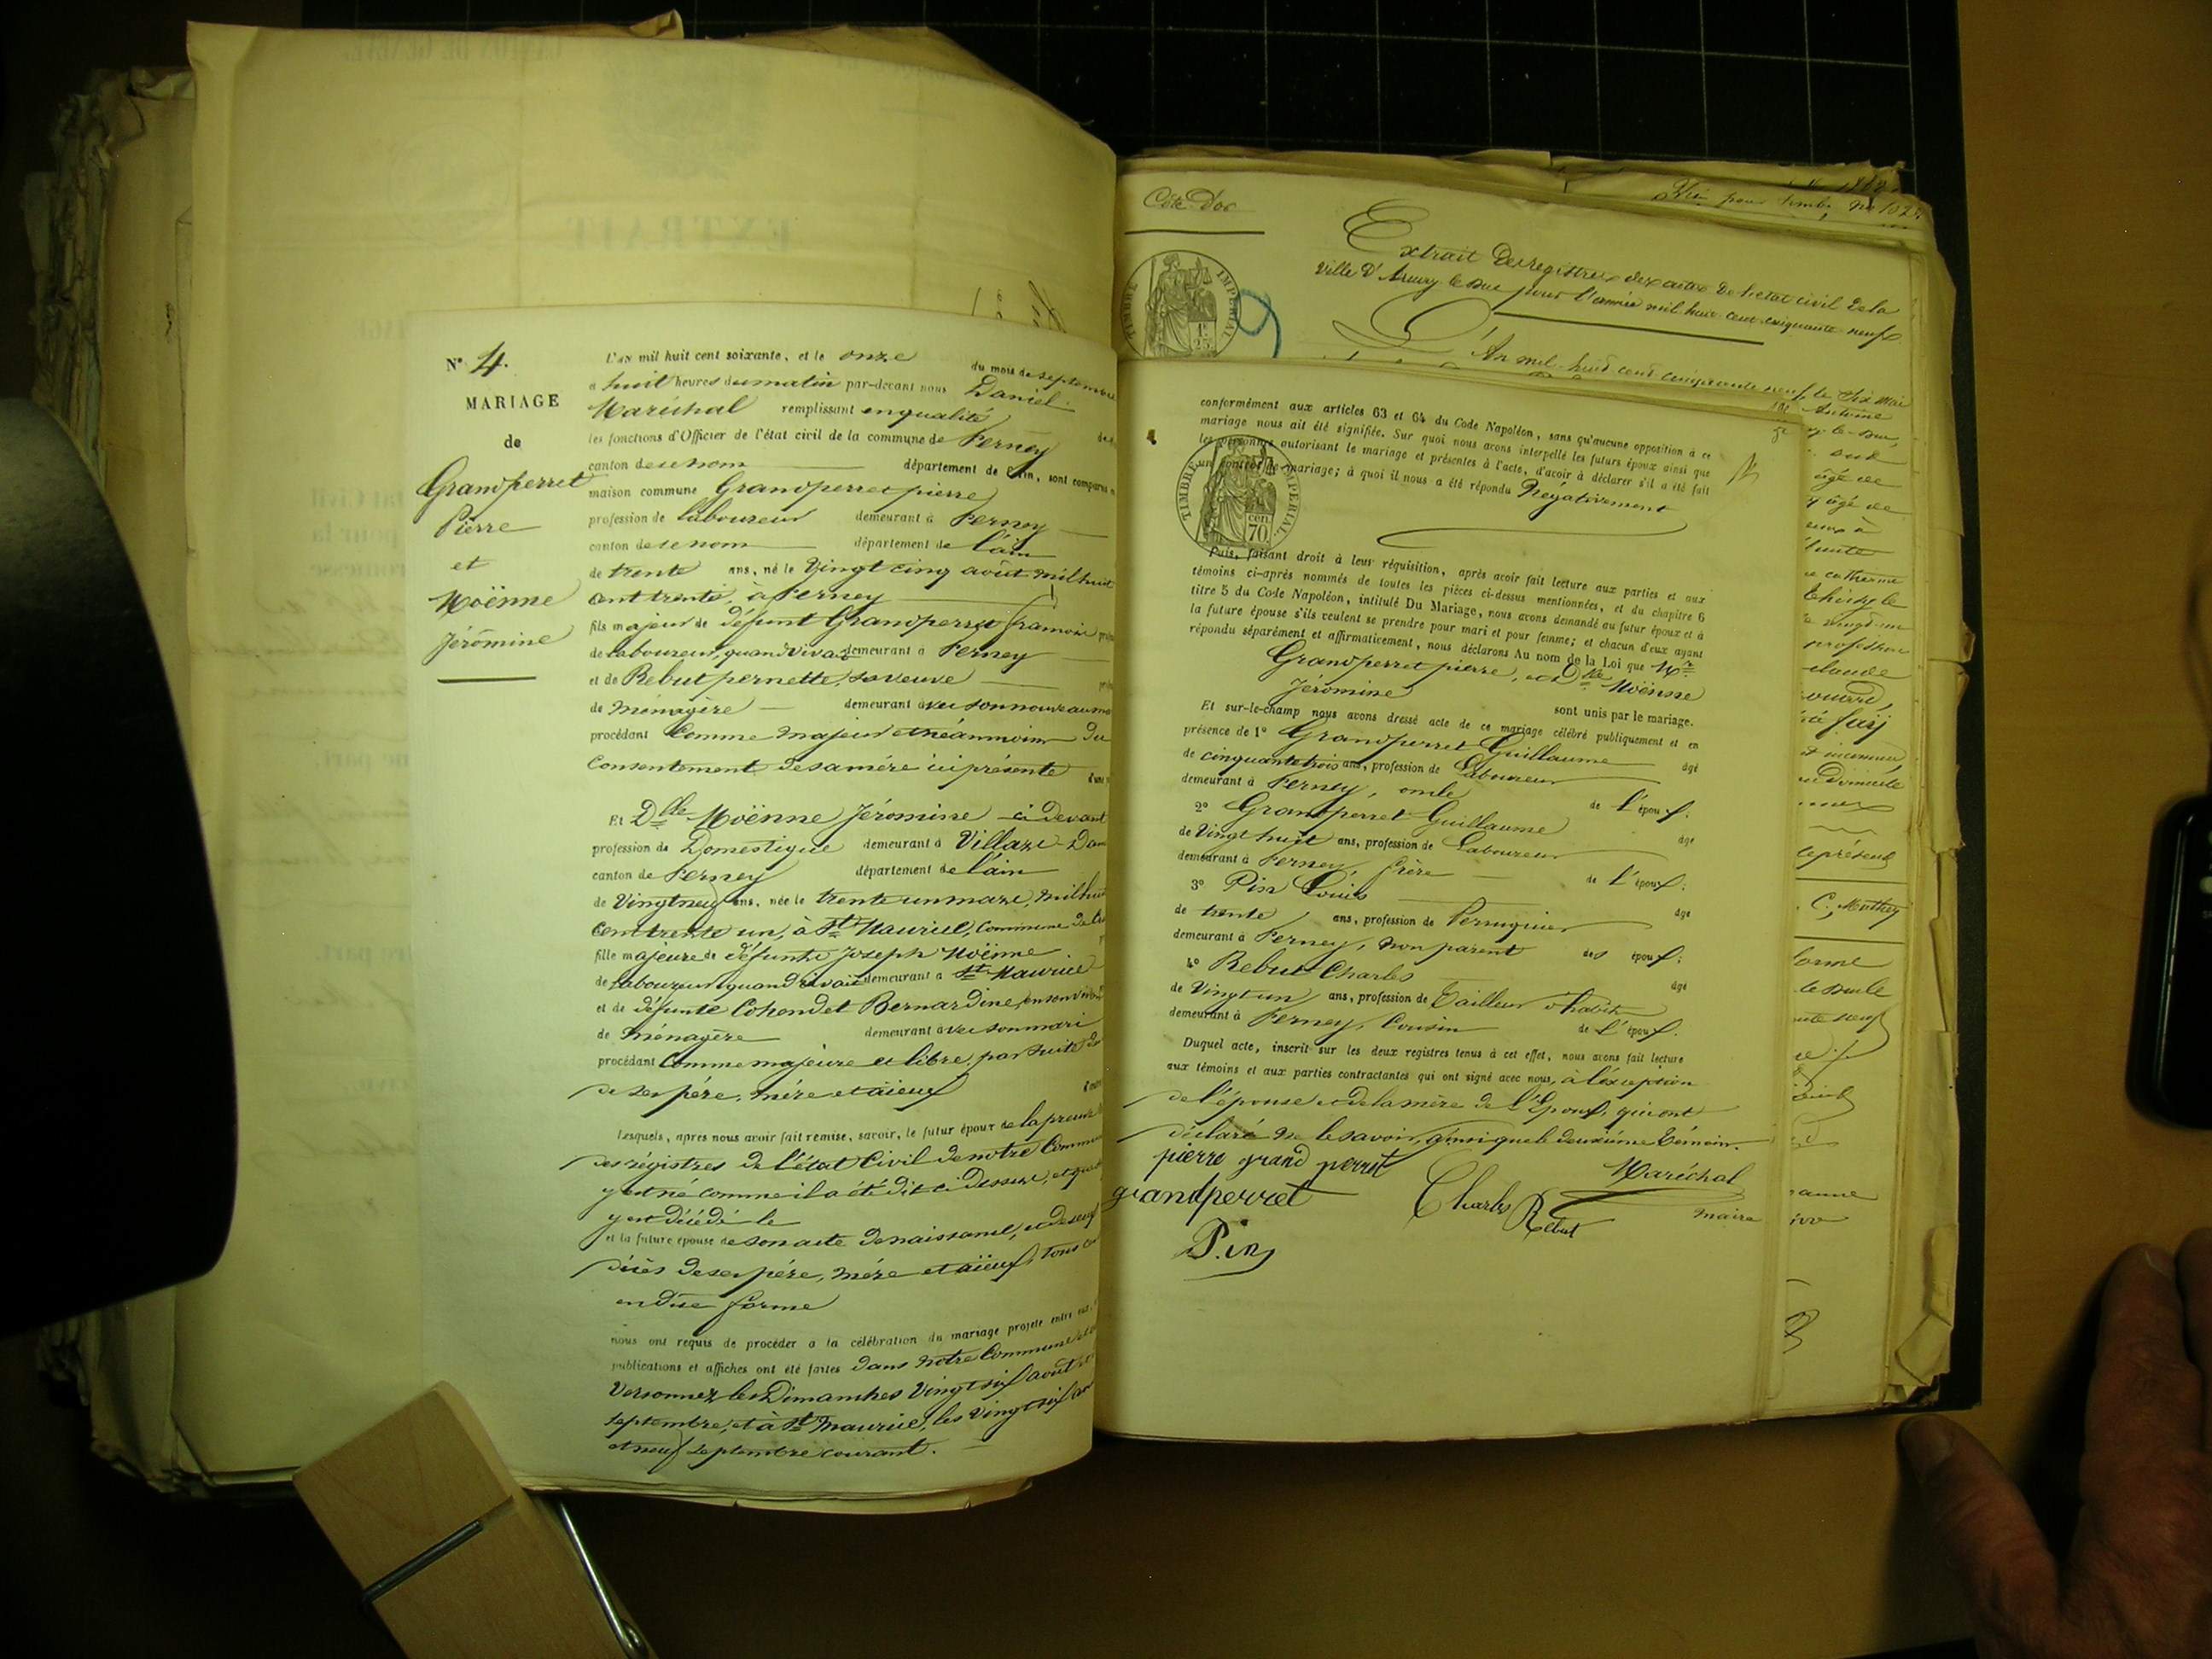 N° 4.
MARIAGE
de
Grandperret
Pierre
et
Moënne
Jéromine
L'AN mil huit cent soixante, et le onze du mois de septembre
à huit heures du matin par-devant nous Daniel
Maréchal remplissant en qualité de
les fonctions d'Officier de l'état civil de la commune de Ferney
canton de ce nom département de l'Ain, sont comparus
maison commune Grandperret pierre
profession de laboureur demeurant à Ferney
canton de ce nom département de l'ain
de trente ans, né le Vingt cinq août mil huit
cent trente, à Ferney
fils majeur de défunt Grandperret françois
de laboureur, quand vivait demeurant à Ferney
et de Rebut pernette, sa veuve
de Ménagère demeurant avec son nouveau
procédant Comme majeur et néanmoins du
Consentement de sa mère ici présente
Et Dlle Moënne Jéromine ci-devant
profession de Domestique demeurant à Villars-Dam
canton de Ferney département de l'ain
de Vingt neuf ans, née le trente un mars, mil huit
cent trente un, à St Maurice, Commune de
fille majeure de défunt Joseph Moënne
de laboureur, quand vivait demeurant à St Maurice
et de défunte Cohendet Bernardine, en son vivant
de Ménagère demeurant avec son mari
procédant Comme majeure et libre, par suite du
de ses père, mère et aïeux
Lesquels, après nous avoir fait remise, savoir, le futur époux de la preuve
des régistres de l'état Civil de notre Commune
y est né comme il a été dit ci dessus, et que
y est décédé le
et la future épouse de son acte de naissance, et de ceux
décès de ses père, mère et aïeux, tous
en due forme
nous ont requis de procéder à la célébration du mariage projeté entre eux,
publications et affiches ont été faites dans notre Commune
Versonnex les Dimanches Vingt six août
septembre, et à St Maurice, les Vingt six
et neuf septembre courant.
Côte d'or
TIMBRE IMPÉRIAL
1f 25c
Extrait des registres des actes de l'état civil de la
Ville d'Arnay le Duc pour l'année mil huit cent cinquante neuf
L'An mil huit cent cinquante neuf, le dix Mai
conformément aux articles 63 et 64 du Code Napoléon, sans qu'aucune opposition à ce
mariage nous ait été signifiée. Sur quoi nous avons interpellé les futurs époux ainsi que
les personnes autorisant le mariage et présentes à l'acte, d'avoir à déclarer s'il a été fait
un contrat de mariage; à quoi il nous a été répondu Négativement
TIMBRE IMPÉRIAL
cen. 70.
Puis, faisant droit à leur réquisition, après avoir fait lecture aux parties et aux
témoins ci-après nommés de toutes les pièces ci-dessus mentionnées, et du chapitre 6
titre 5 du Code Napoléon, intitulé Du Mariage, nous avons demandé au futur époux et à
la future épouse s'ils veulent se prendre pour mari et pour femme; et chacun d'eux ayant
répondu séparément et affirmativement, nous déclarons Au nom de la Loi que Mr
Grandperret pierre, et Dlle Moënne
Jéromine sont unis par le mariage.
Et sur-le-champ nous avons dressé acte de ce mariage célébré publiquement et en
présence de 1° Grandperret Guillaume âgé
de cinquante trois ans, profession de Laboureur
demeurant à Ferney, oncle de l'époux.
2° Grandperret Guillaume âgé
de Vingt huit ans, profession de Laboureur
demeurant à Ferney, frère de l'époux;
3° Pin Louis âgé
de trente ans, profession de Perruquier
demeurant à Ferney, non parent des époux;
4° Rebut Charles âgé
de Vingt un ans, profession de Tailleur d'habits
demeurant à Ferney, Cousin de l'époux.
Duquel acte, inscrit sur les deux registres tenus à cet effet, nous avons fait lecture
aux témoins et aux parties contractantes qui ont signé avec nous, à l'exception
de l'épouse et de la mère de l'Époux, qui ont
déclaré ne le savoir, ainsi que le deuxième témoin.
pierre grand perret
Maréchal
grandperret
Charles Rebut
maire
Pin